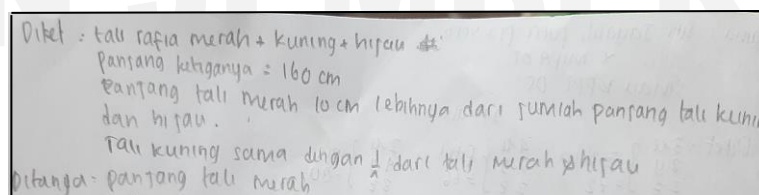 Diket : tali rafia merah + kuning + hijau
panjang ketiganya = 160 cm
panjang tali merah 10 cm lebihnya dari jumlah panjang tali kuni
dan hijau.
Tali kuning sama dengan dari tali merah hijau
Ditanya = panjang tali merah